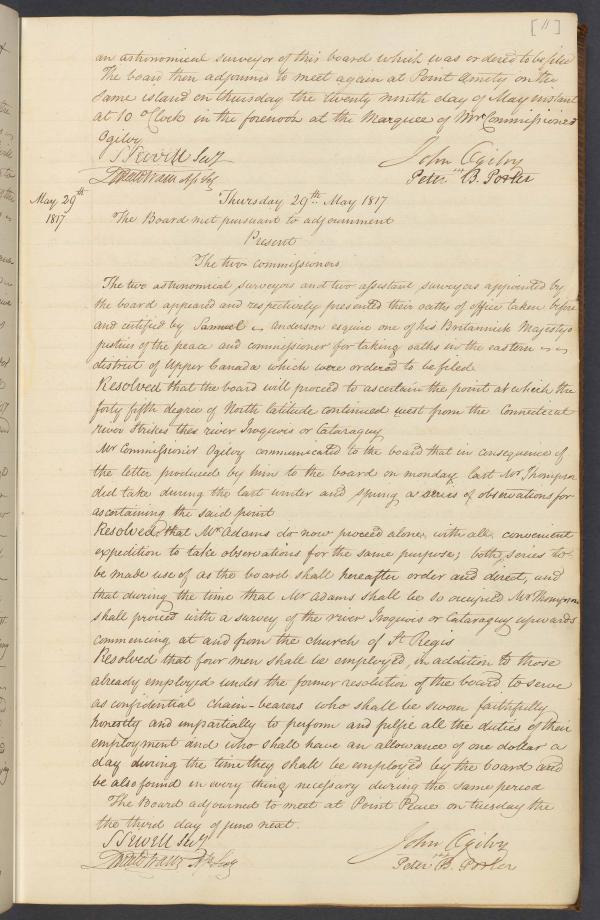 [11]
an astronomical surveyor of this board which was ordered to be filed
The board then adjourned to meet again at Point Amity on the
same island on thursday the twenty ninth day of May instant
at 10 o'Clock in the forenoon at the Marquee of Mr Commissioner
Ogilvy
S Sewell Secy John Ogilvy
Peter B. Porter
May 29th
1817
Thursday 29th May 1817
The Board met pursuant to adjournment
Present
The two commissioners
The two astronomical surveyors and two assistant surveyors appointed by
the board appeared and respectively presented their oaths of office taken before
and certified by Samuel Anderson esquire one of his Britannick Majestys
justices of the peace and commissioner for taking oaths in the eastern
district of Upper Canada which were ordered to be filed
Resolved that the board will proceed to ascertain the point at which the
forty fifth degree of North latitude continued west from the Connecticut
river strikes the river Iroquois or Cataraguy
Mr Commissioner Ogilvy communicated to the board that in consequence of
the letter produced by him to the board on monday last Mr Thompson
did take during the last winter and spring a series of observations for
ascertaining the said point
Resolved that Mr Adams do now proceed alone, with all convenient
expedition to take observations for the same purpose; both series to
be made use of as the board shall hereafter order and direct, and
that during the time that Mr Adams shall be so occupied Mr Thompson
shall proceed with a survey of the river Iroquois or Cataraguy upwards
commencing at and from the church of St Regis
Resolved that four men shall be employed, in addition to those
already employed under the former resolution of the board to serve
as confidential chain-bearers who shall be sworn faithfully
honestly and impartially to perform and fulfil all the duties of their
employment and who shall have an allowance of one dollar a
day during the time they shall be employed by the board and
be also found in every thing necessary during the same period
The Board adjourned to meet at Point Peace on tuesday the
the third day of june next.
S Sewell Secy John Ogilvy
Peter B. Porter